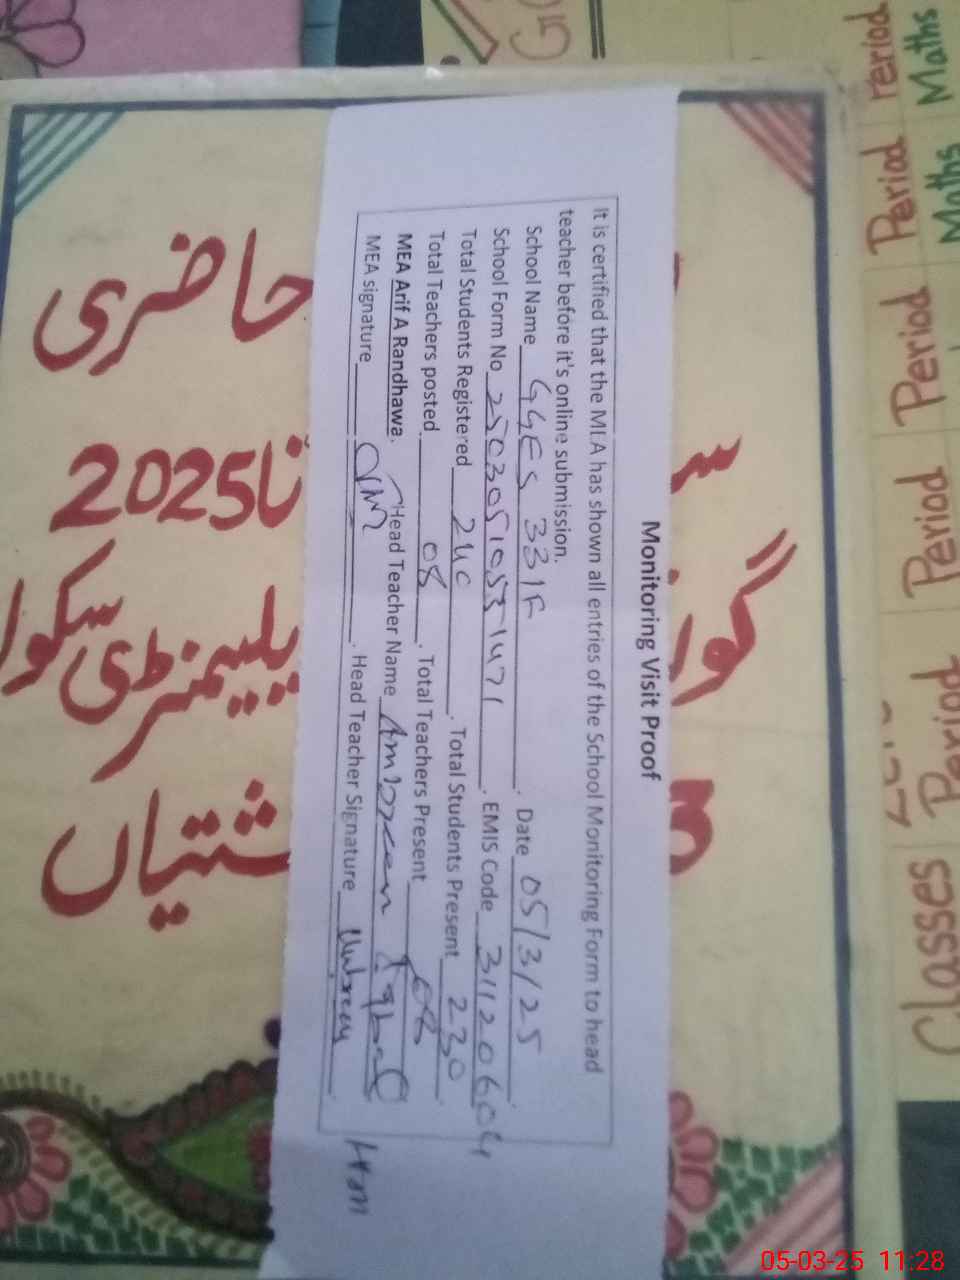 Monitoring Visit Proof
It is certified that the MLA has shown all entries of the School Monitoring Form to head
teacher before it's online submission.
School Name GGES 331F. Date 05/3/25
School Form No 250305105531471. EMIS Code 31120604
Total Students Registered 240. Total Students Present 230
Total Teachers posted 08. Total Teachers Present 08
MEA Arif A Randhawa. Head Teacher Name Ambreen Iqbal
MEA signature. Head Teacher Signature Ambreen
H.M
حاضری
تا2025
ایلیمنٹری سکول
Classes
Period
Period
Period
Period
Period
Maths
Maths
05-03-25 11:28